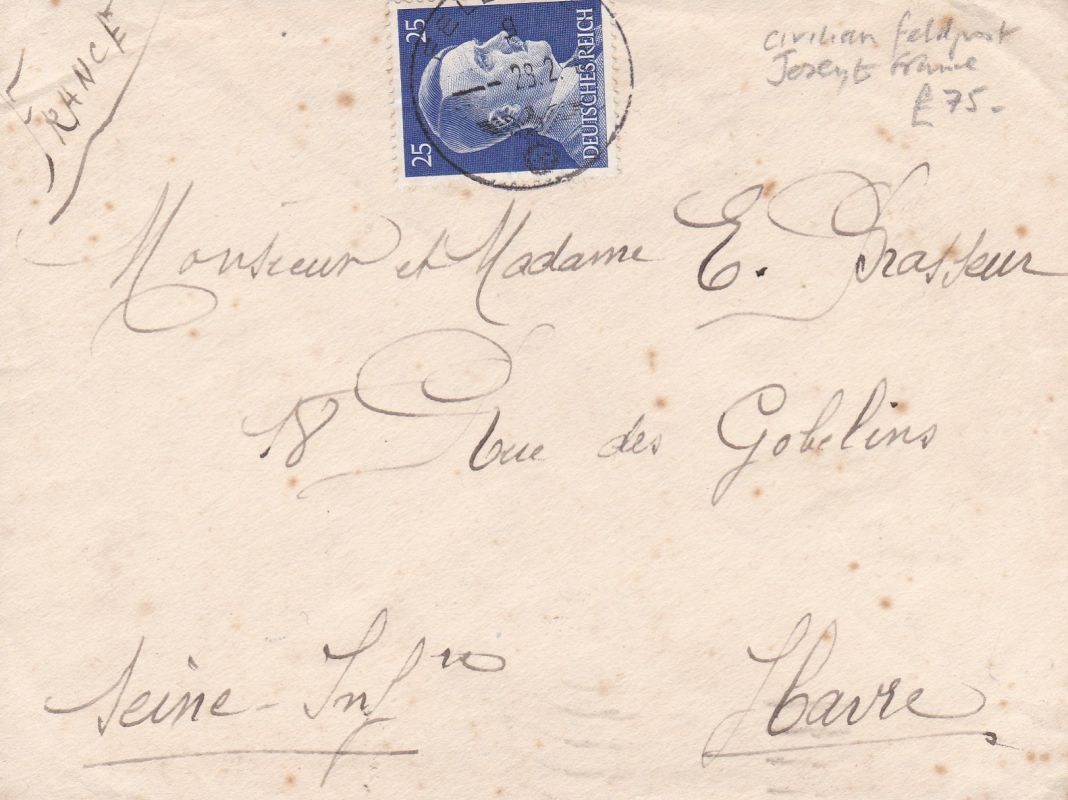 FRANCE
25 25
DEUTSCHES REICH
28.2.
civilian feldpost
Jersey to France
£75-
Monsieur et Madame E. Brasseur
18 Rue des Gobelins
Seine-Infre
Havre